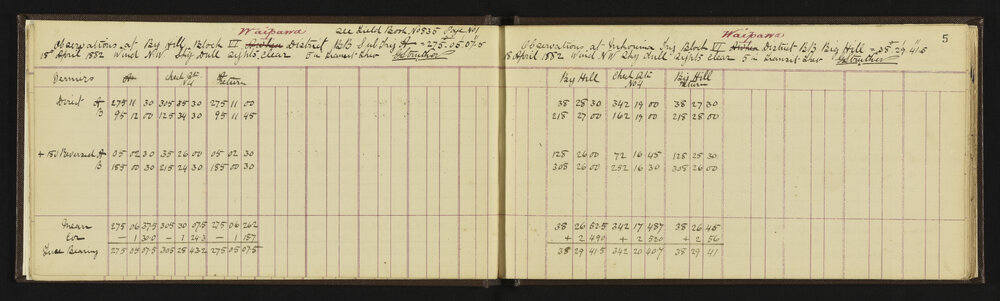 Waipawa See Field Book No 535 Page No 1
Observations at Big Hill, Block VI District B/B Sub Trig A = 275.05.07".5
18 April 1882 Wind N.W. Sky Dull Lights, clear 5 in transit
Verniers A Check Stn No 4 A Return
Direct A 275 11 30 305 35 30 275 11 00
B 95 12 00 125 34 30 95 11 45
+ 180 Reversed A 05 02 30 35 26 00 05 02 30
B 185 00 30 215 24 30 185 00 30
Mean 275 06 37.5 305 30 07.5 275 06 26.2
Cor — 1 30.0 — 1 24.3 — 1 18.7
True Bearing 275 05 07.5 305 28 43.2 275 05 07.5
Waipawa 5
Observations at Trig Block VI District B/B Big Hill = 38°29'41".5
18 April 1882 Wind N.W. Sky Dull Lights clear 5 in transit
Big Hill Check Stn No 4 Big Hill Return
38 28 30 342 19 00 38 27 30
218 27 00 162 19 00 218 28 00
128 26 00 72 16 45 128 25 30
308 26 00 252 16 30 308 26 00
38 26 52.5 342 17 48.7 38 26 45
+ 2 49.0 + 2 52.0 + 2 56
38 29 41.5 342 20 40.7 38 29 41